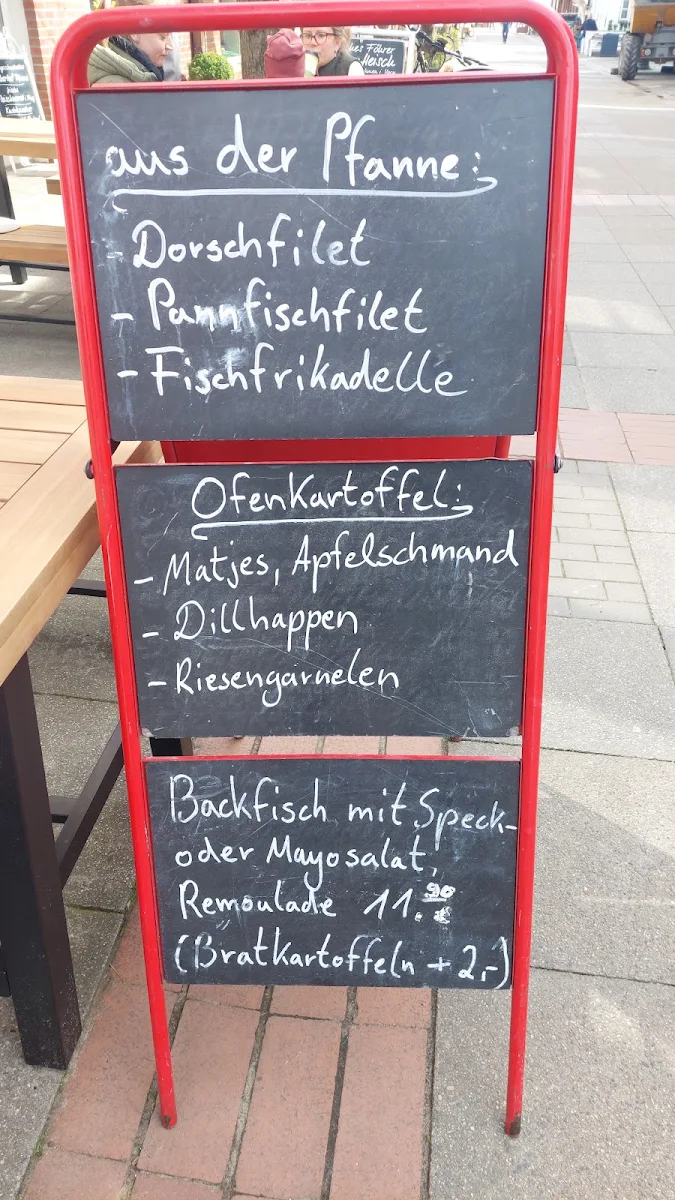 aus der Pfanne:
- Dorschfilet
- Pannfischfilet
- Fischfrikadelle
Ofenkartoffel:
- Matjes, Apfelschmand
- Dillhappen
- Riesengarnelen
Backfisch mit Speck-
oder Mayosalat,
Remoulade 11.90 €
(Bratkartoffeln + 2,-)